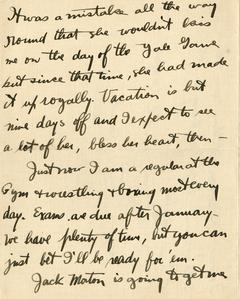 It was a mistake all the way
round that she wouldn't kiss
me on the day of the Yale Game
but since that time, she had made
it up royally. Vacation is but
nine days off and I expect to see
a lot of her, bless her heart, then —
Just now I am a regular at the
Gym & wrestling & boxing most every
day. Exams are due after January—
we have plenty of time, but you can
just bet I'll be ready for 'em.
Jack Moton is going to get me